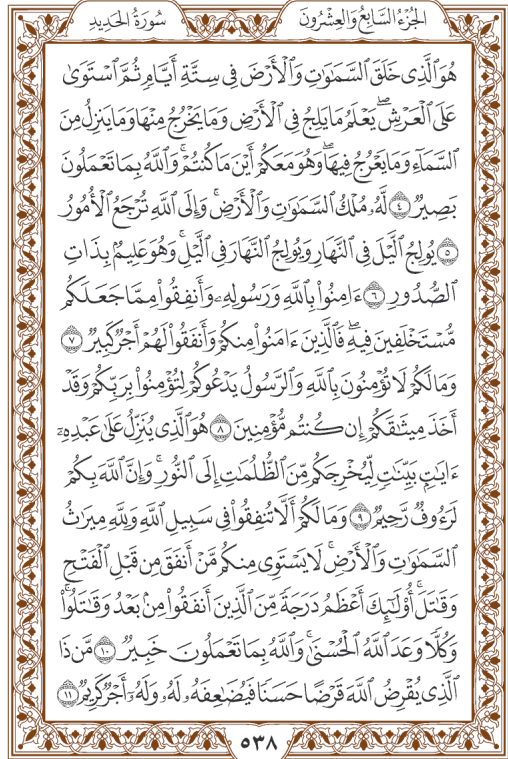 الجُزْءُ السَّابِعُ وَالعِشْرُونَ
سُورَةُ الحَدِيدِ
هُوَ ٱلَّذِى خَلَقَ ٱلسَّمَٰوَٰتِ وَٱلْأَرْضَ فِى سِتَّةِ أَيَّامٍ ثُمَّ ٱسْتَوَىٰ
عَلَى ٱلْعَرْشِۖ يَعْلَمُ مَا يَلِجُ فِى ٱلْأَرْضِ وَمَا يَخْرُجُ مِنْهَا وَمَا يَنزِلُ مِنَ
ٱلسَّمَآءِ وَمَا يَعْرُجُ فِيهَاۖ وَهُوَ مَعَكُمْ أَيْنَ مَا كُنتُمْۚ وَٱللَّهُ بِمَا تَعْمَلُونَ
بَصِيرٌ ٤ لَّهُۥ مُلْكُ ٱلسَّمَٰوَٰتِ وَٱلْأَرْضِۚ وَإِلَى ٱللَّهِ تُرْجَعُ ٱلْأُمُورُ
٥ يُولِجُ ٱلَّيْلَ فِى ٱلنَّهَارِ وَيُولِجُ ٱلنَّهَارَ فِى ٱلَّيْلِۚ وَهُوَ عَلِيمٌۢ بِذَاتِ
ٱلصُّدُورِ ٦ ءَامِنُوا۟ بِٱللَّهِ وَرَسُولِهِۦ وَأَنفِقُوا۟ مِمَّا جَعَلَكُم
مُّسْتَخْلَفِينَ فِيهِۖ فَٱلَّذِينَ ءَامَنُوا۟ مِنكُمْ وَأَنفَقُوا۟ لَهُمْ أَجْرٌ كَبِيرٌ ٧
وَمَا لَكُمْ لَا تُؤْمِنُونَ بِٱللَّهِ وَٱلرَّسُولُ يَدْعُوكُمْ لِتُؤْمِنُوا۟ بِرَبِّكُمْ وَقَدْ
أَخَذَ مِيثَٰقَكُمْ إِن كُنتُم مُّؤْمِنِينَ ٨ هُوَ ٱلَّذِى يُنَزِّلُ عَلَىٰ عَبْدِهِۦٓ
ءَايَٰتٍۭ بَيِّنَٰتٍ لِّيُخْرِجَكُم مِّنَ ٱلظُّلُمَٰتِ إِلَى ٱلنُّورِۚ وَإِنَّ ٱللَّهَ بِكُمْ
لَرَءُوفٌ رَّحِيمٌ ٩ وَمَا لَكُمْ أَلَّا تُنفِقُوا۟ فِى سَبِيلِ ٱللَّهِ وَلِلَّهِ مِيرَٰثُ
ٱلسَّمَٰوَٰتِ وَٱلْأَرْضِۚ لَا يَسْتَوِى مِنكُم مَّنْ أَنفَقَ مِن قَبْلِ ٱلْفَتْحِ
وَقَٰتَلَۚ أُو۟لَٰٓئِكَ أَعْظَمُ دَرَجَةً مِّنَ ٱلَّذِينَ أَنفَقُوا۟ مِنۢ بَعْدُ وَقَٰتَلُوا۟ۚ
وَكُلًّا وَعَدَ ٱللَّهُ ٱلْحُسْنَىٰۚ وَٱللَّهُ بِمَا تَعْمَلُونَ خَبِيرٌ ١٠ مَّن ذَا
ٱلَّذِى يُقْرِضُ ٱللَّهَ قَرْضًا حَسَنًا فَيُضَٰعِفَهُۥ لَهُۥ وَلَهُۥٓ أَجْرٌ كَرِيمٌ ١١
٥٣٨